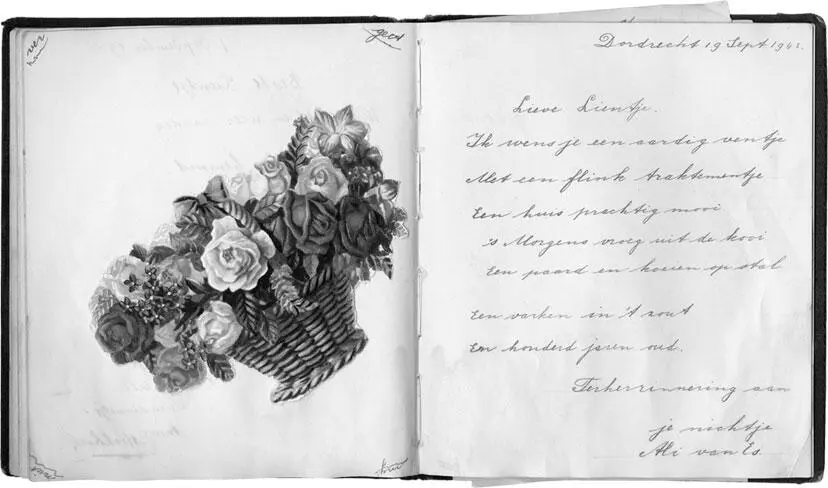 ver
geet
Dordrecht 19 Sept 1941.
Lieve Lientje.
Ik wens je een aardig ventje
Met een flink traktementje
Een huis prachtig mooi
's Morgens vroeg uit de kooi
Een paard en koeien op stal
Een varken in 't zout
En honderd jaren oud.
Terherrinnering aan
je nichtje
Ali van Es.